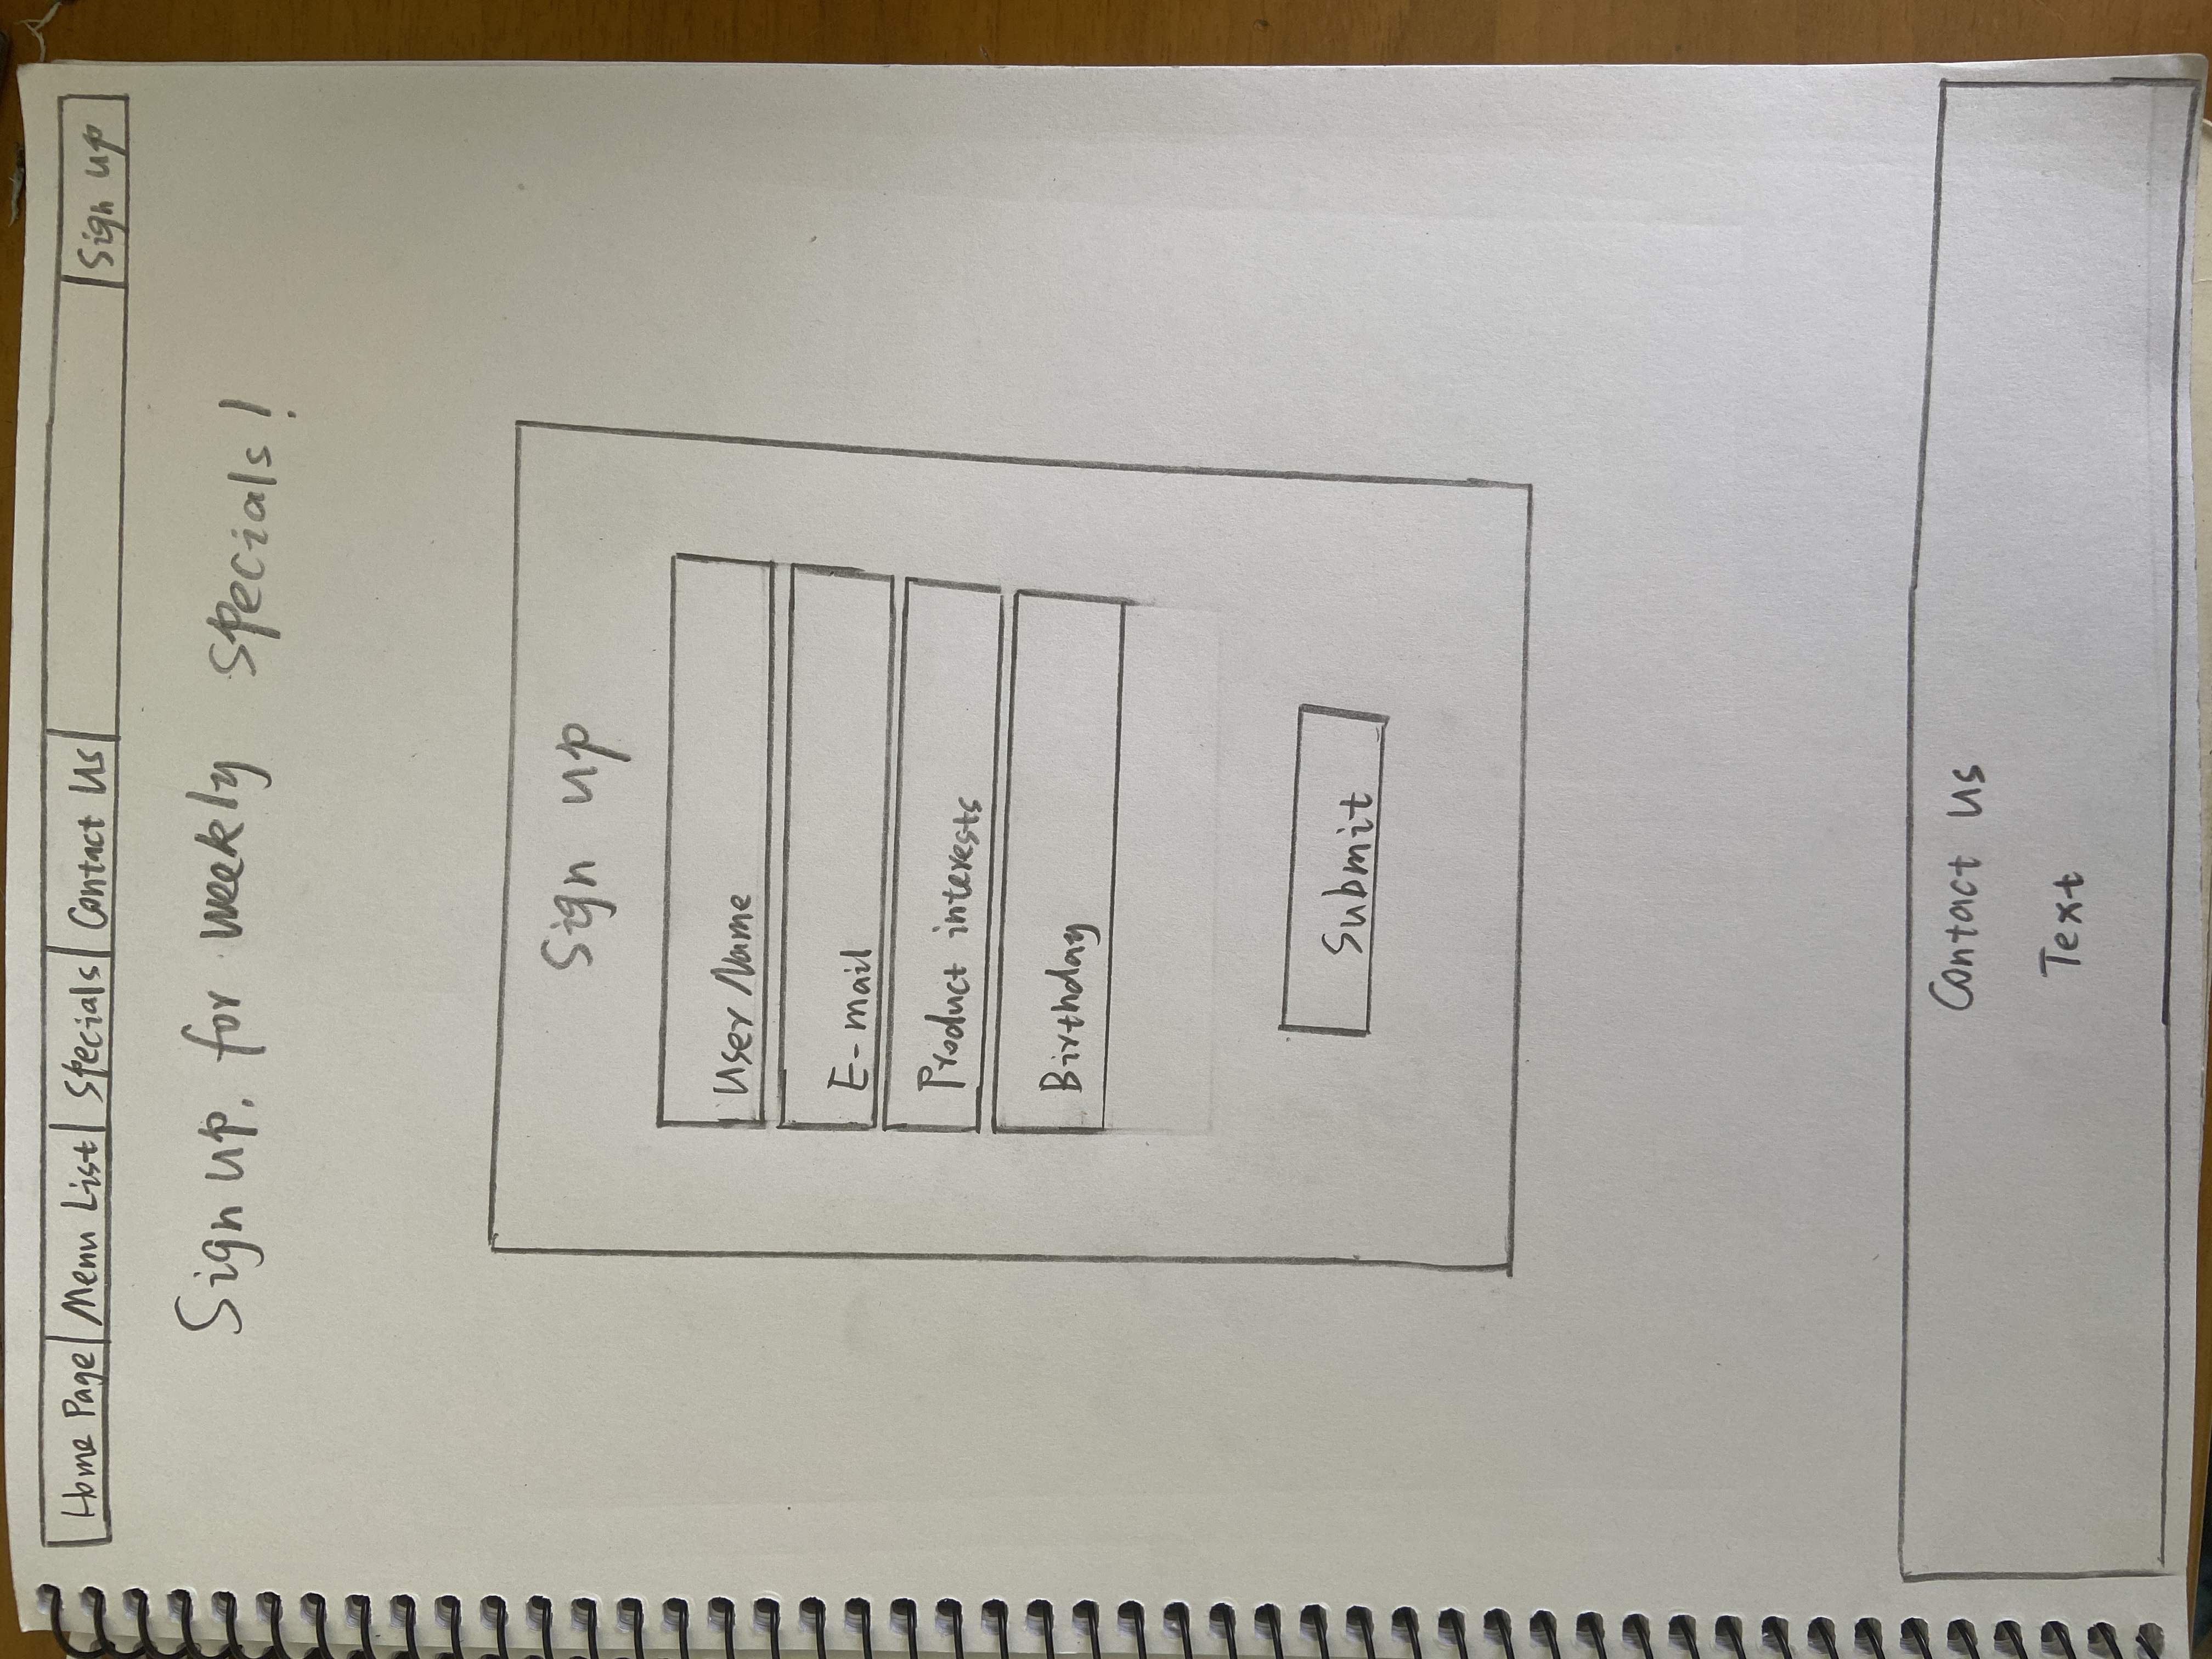 Home Page Menu List Specials Contact Us Sign up
Sign up. for weekly specials!
Sign up
User Name
E-mail
Product interests
Birthday
Submit
Contact us
Text